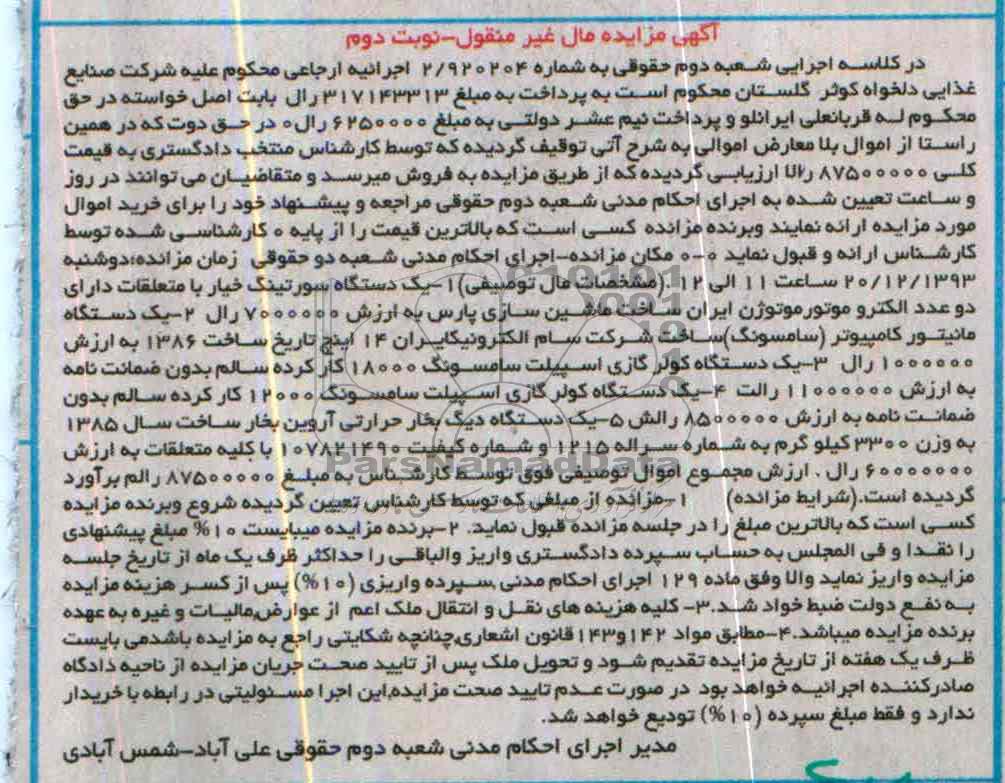 آگهی مزایده مال غیر منقول-نوبت دوم
در کلاسه اجرایی شعبه دوم حقوقی به شماره ۲/۹۲۰۲۰۴ اجرائیه ارجاعی محکوم علیه شرکت صنایع
غذایی دلخواه کوثر گلستان محکوم است به پرداخت به مبلغ ۳۱۷۱۴۳۳۱۳ رال بابت اصل خواسته در حق
محکوم له قربانعلی ایرانلو و پرداخت نیم عشر دولتی به مبلغ ۶۲۵۰۰۰۰ رال۰ در حق دوت که در همین
راستا از اموال بلا معارض اموالی به شرح آتی توقیف گردیده که توسط کارشناس منتخب دادگستری به قیمت
کلی ۸۷۵۰۰۰۰۰ ارزیابی گردیده که از طریق مزایده به فروش میرسد و متقاضیان می توانند در روز
و ساعت تعیین شده به اجرای احکام مدنی شعبه دوم حقوقی مراجعه و پیشنهاد خود را برای خرید اموال
مورد مزایده ارائه نمایند وبرنده مزائده کسی است که بالاترین قیمت را از پایه ه کارشناسی شده توسط
کارشناس ارائه و قبول نماید ۰-۰ مکان مزائده-اجرای احکام مدنی شعبه دو حقوقی زمان مزائده؛دوشنبه
۲۰/۱۲/۱۳۹۳ ساعت ۱۱ الی ۱۲ .(مشخصات مال توصیفی)۱-یک دستگاه سورتینگ خیار با متعلقات دارای
دو عدد الکترو موتورموتوژن ایران ساخت ماشین سازی پارس به ارزش ۷۰۰۰۰۰۰ رال ۲-یک دستگاه
مانیتور کامپیوتر (سامسونگ)ساخت شرکت سام الکترونیکایران ۱۴ اینچ تاریخ ساخت ۱۳۸۶ به ارزش
۱۰۰۰۰۰۰ رال ۳-یک دستگاه کولر گازی اسپیلت سامسونگ ۱۸۰۰۰ کار کرده سالم بدون ضمانت نامه
به ارزش ۱۱۰۰۰۰۰۰ رالت ۴-یک دستگاه کولر گازی اسپیلت سامسونگ ۱۲۰۰۰ کار کرده سالم بدون
ضمانت نامه به ارزش ۸۵۰۰۰۰۰ رالش ۵-یک دستگاه دیگ بخار حرارتی آروین بخار ساخت سال ۱۳۸۵
به وزن ۳۳۰۰ کیلو گرم به شماره سراله ۱۲۱۵ و شماره کیفیت ۱۰۷۸۲۱۴۹۰ با کلیه متعلقات به ارزش
۶۰۰۰۰۰۰۰ رال . ارزش مجموع اموال توصیفی فوق توسط کارشناس به مبلغ ۸۷۵۰۰۰۰۰ رالم برآورد
گردیده است.(شرایط مزائده) ۱-مزائده از مبلغی که توسط کارشناس تعیین گردیده شروع وبرنده مزایده
کسی است که بالاترین مبلغ را در جلسه مزائده قبول نماید. ۲-برنده مزایده میبایست ۱۰% مبلغ پیشنهادی
را نقدا و فی المجلس به حساب سپرده دادگستری واریز والباقی را حداکثر ظرف یک ماه از تاریخ جلسه
مزایده واریز نماید والا وفق ماده ۱۲۹ اجرای احکام مدنی ,سپرده واریزی (۱۰%) پس از کسر هزینه مزایده
به نفع دولت ضبط خواد شد.۳- کلیه هزینه های نقل و انتقال ملک اعم از عوارض,مالیات و غیره به عهده
برنده مزایده میباشد.۴-مطابق مواد ۱۴۲و۱۴۳قانون اشعاری,چنانچه شکایتی راجع به مزایده باشدمی بایست
ظرف یک هفته از تاریخ مزایده تقدیم شود و تحویل ملک پس از تایید صحت جریان مزایده از ناحیه دادگاه
صادرکننده اجرائیه خواهد بود در صورت عدم تایید صحت مزایده,این اجرا مسئولیتی در رابطه با خریدار
ندارد و فقط مبلغ سپرده (۱۰%) تودیع خواهد شد.
مدیر اجرای احکام مدنی شعبه دوم حقوقی علی آباد-شمس آبادی